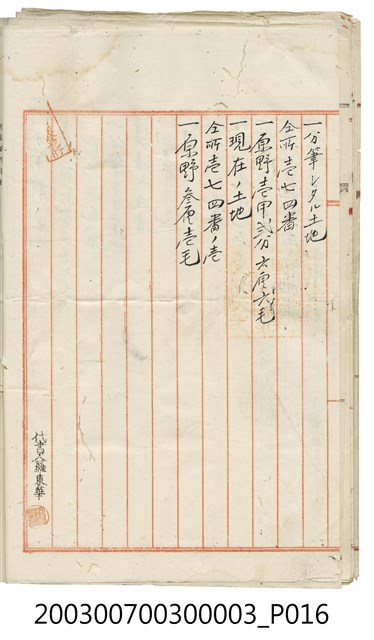 一分筆シタル土地
仝所壱七四番
一原野壱甲弐分六厘六毛
一現在ノ土地
仝所壱七四番ノ壱
一原野参厘壱毛
代書人羅東華
200300700300003_P016